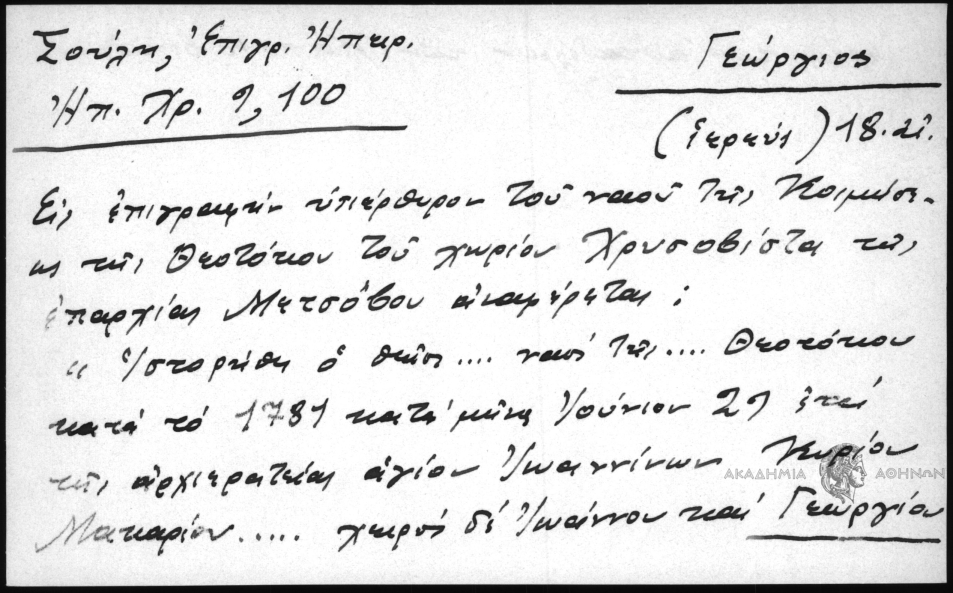 Σούλη, Ἐπιγρ. Ἠπειρ.
Ἠπ. Χρ. 9, 100
Γεώργιος
(ἱερεύς) 18. αἰ.
Εἰς ἐπιγραφήν ὑπέρθυρον τοῦ ναοῦ τῆς Κοιμήσε-
ως τῆς Θεοτόκου τοῦ χωρίου Χρυσοβίστα τῆς
ἐπαρχίας Μετσόβου ἀναφέρεται:
"Ἱστορήθη ὁ θεῖος.... ναός τῆς.... Θεοτόκου
κατά τό 1781 κατά μῆνα Ἰούνιον 29 ἐπί
τῆς ἀρχιερατείας ἁγίου Ἰωαννίνων Κυρίου
Μακαρίου..... χειρός δέ Ἰωάννου καί Γεωργίου
ΑΚΑΔΗΜΙΑ ΑΘΗΝΩΝ